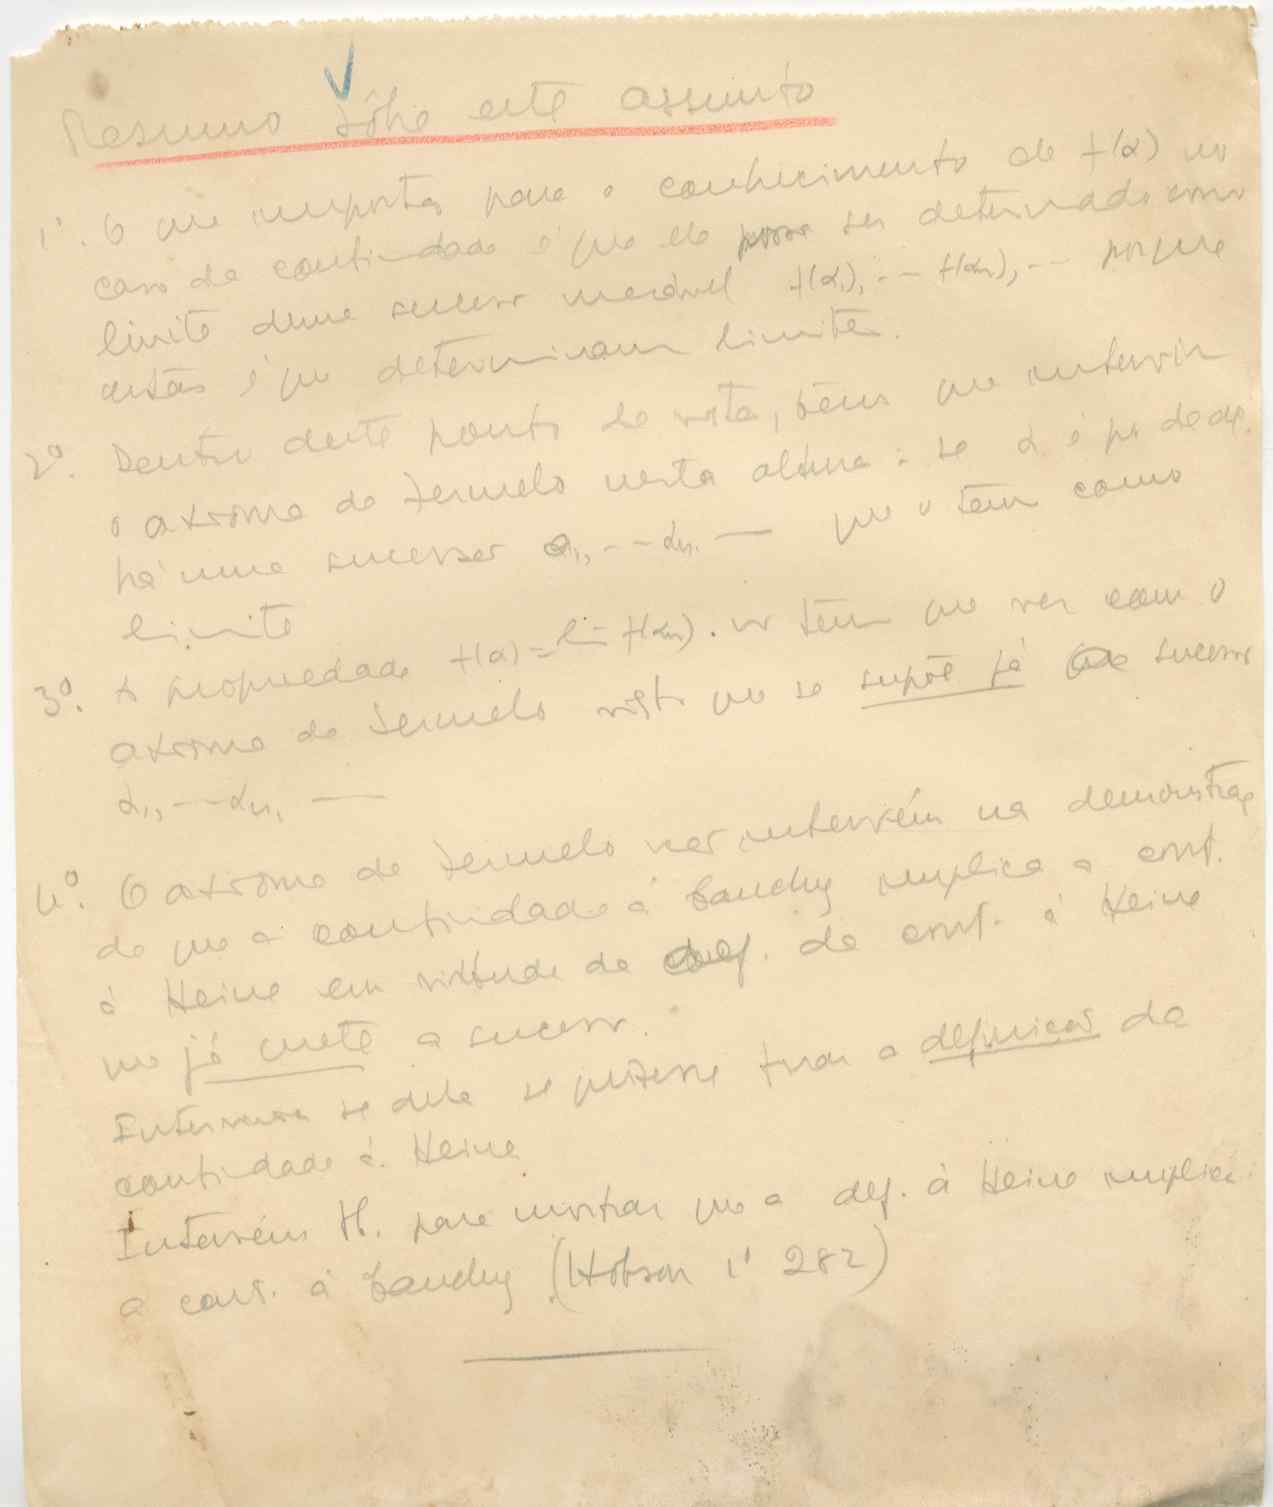 Resumo sôbre este assunto
1º. O que importa para o conhecimento de f(α) no
caso da continuidade é que ele possa ser determinado como
limite duma sucessão f(α₁), -- f(αn), -- porque
estas é que determinam limites.
2º. Dentro deste ponto de vista, tem que intervir
o axioma de Zermelo nesta altura: se α é p.
há uma sucessão α₁, -- αn, — que o tem como
limite
3º. A propriedade f(α) = lim f(αn). não tem que ver com o
axioma de Zermelo visto que se supõe já sucessão
α₁, -- αn, —
4º. O axioma de Zermelo não intervém na demonstração
de que a continuidade à Cauchy implica a cont.
à Heine em virtude da def. de cont. à Heine
que já mete a sucessão.
Interviria se dela se quizesse tirar a definição da
continuidade à Heine
Intervém para mostrar que a def. à Heine implica
a cont. à Cauchy (Hobson 1º 282)